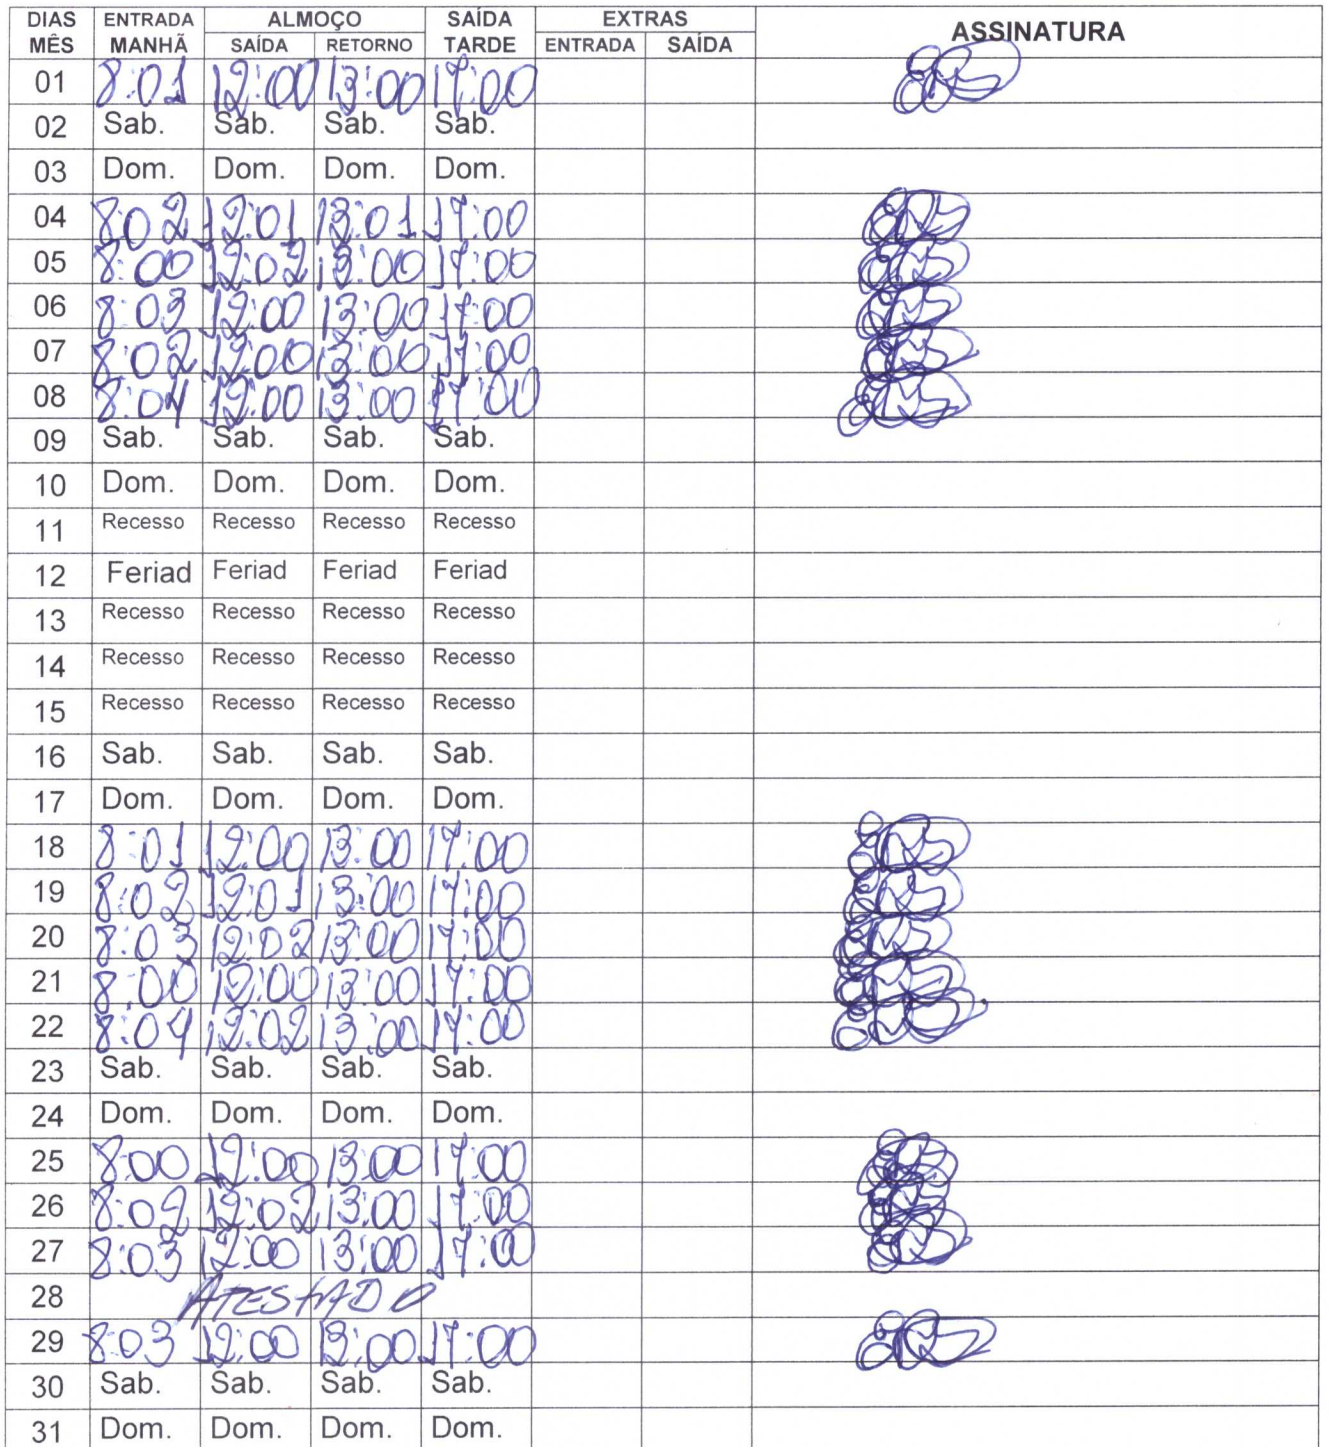 DIAS MÊS ENTRADA MANHÃ ALMOÇO SAÍDA RETORNO SAÍDA TARDE EXTRAS ENTRADA SAÍDA ASSINATURA
01 8:01 12:00 13:00 17:00
02 Sab. Sab. Sab. Sab.
03 Dom. Dom. Dom. Dom.
04 8:02 12:01 13:01 17:00
05 8:00 12:02 13:00 17:00
06 8:03 12:00 13:00 17:00
07 8:02 12:00 13:00 17:00
08 8:04 12:00 13:00 17:00
09 Sab. Sab. Sab. Sab.
10 Dom. Dom. Dom. Dom.
11 Recesso Recesso Recesso Recesso
12 Feriad Feriad Feriad Feriad
13 Recesso Recesso Recesso Recesso
14 Recesso Recesso Recesso Recesso
15 Recesso Recesso Recesso Recesso
16 Sab. Sab. Sab. Sab.
17 Dom. Dom. Dom. Dom.
18 8:01 12:00 13:00 17:00
19 8:02 12:01 13:00 17:00
20 8:03 12:02 13:00 17:00
21 8:00 12:00 13:00 17:00
22 8:04 12:02 13:00 17:00
23 Sab. Sab. Sab. Sab.
24 Dom. Dom. Dom. Dom.
25 8:00 12:00 13:00 17:00
26 8:02 12:02 13:00 17:00
27 8:03 12:00 13:00 17:00
28 ATESTADO
29 8:03 12:00 13:00 17:00
30 Sab. Sab. Sab. Sab.
31 Dom. Dom. Dom. Dom.